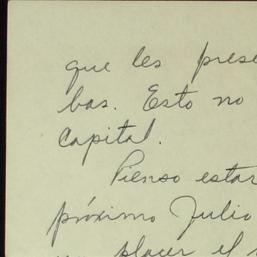 que les prese
bas. Esto no
Capital.
Pienso estar
próximo Julio
placer el